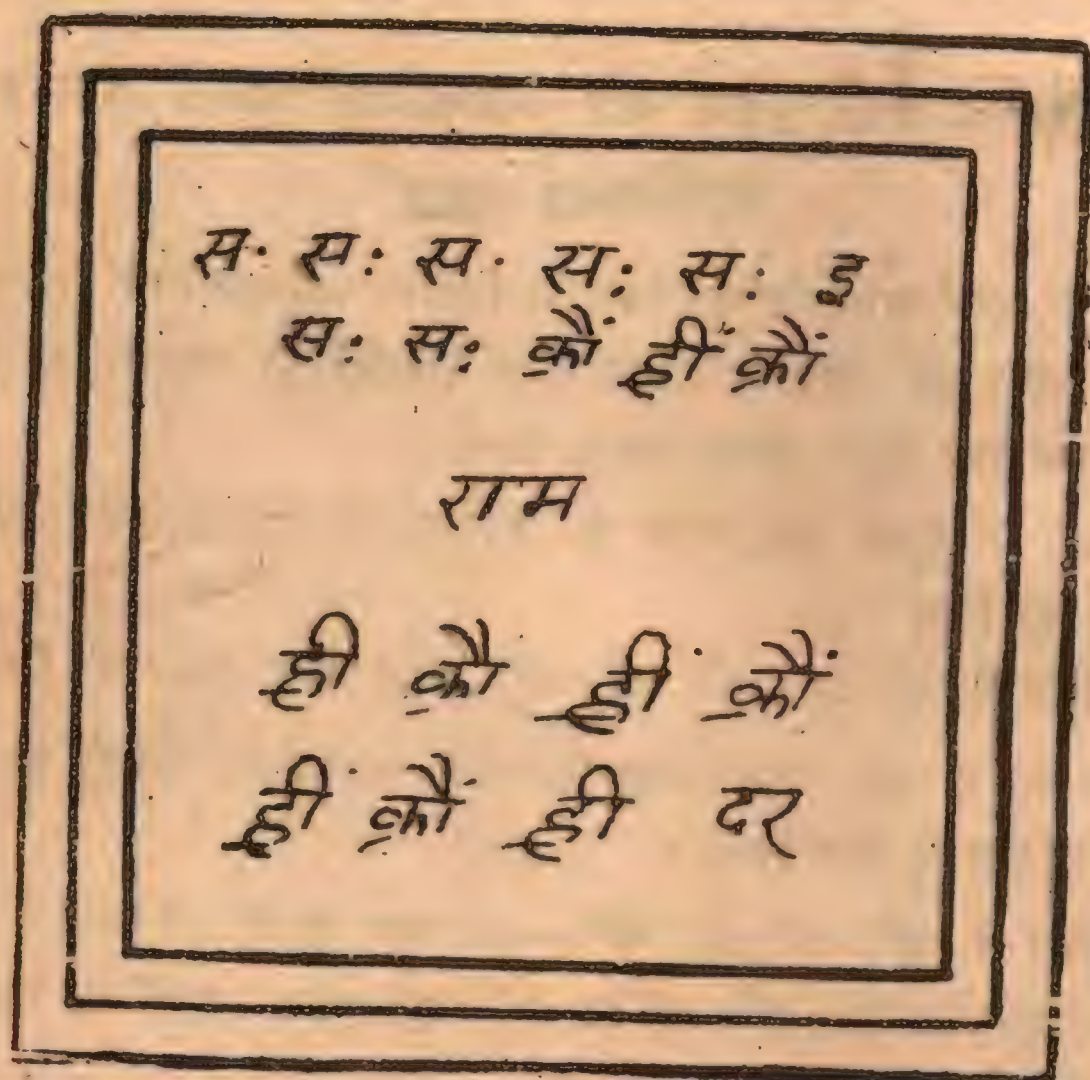 स. सः स. सः सः इ
सः सः क्रौं ह्रीं क्रौं
राम
ह्री क्रौ ह्रीं क्रौं
ह्रीं क्रौं ह्री दर